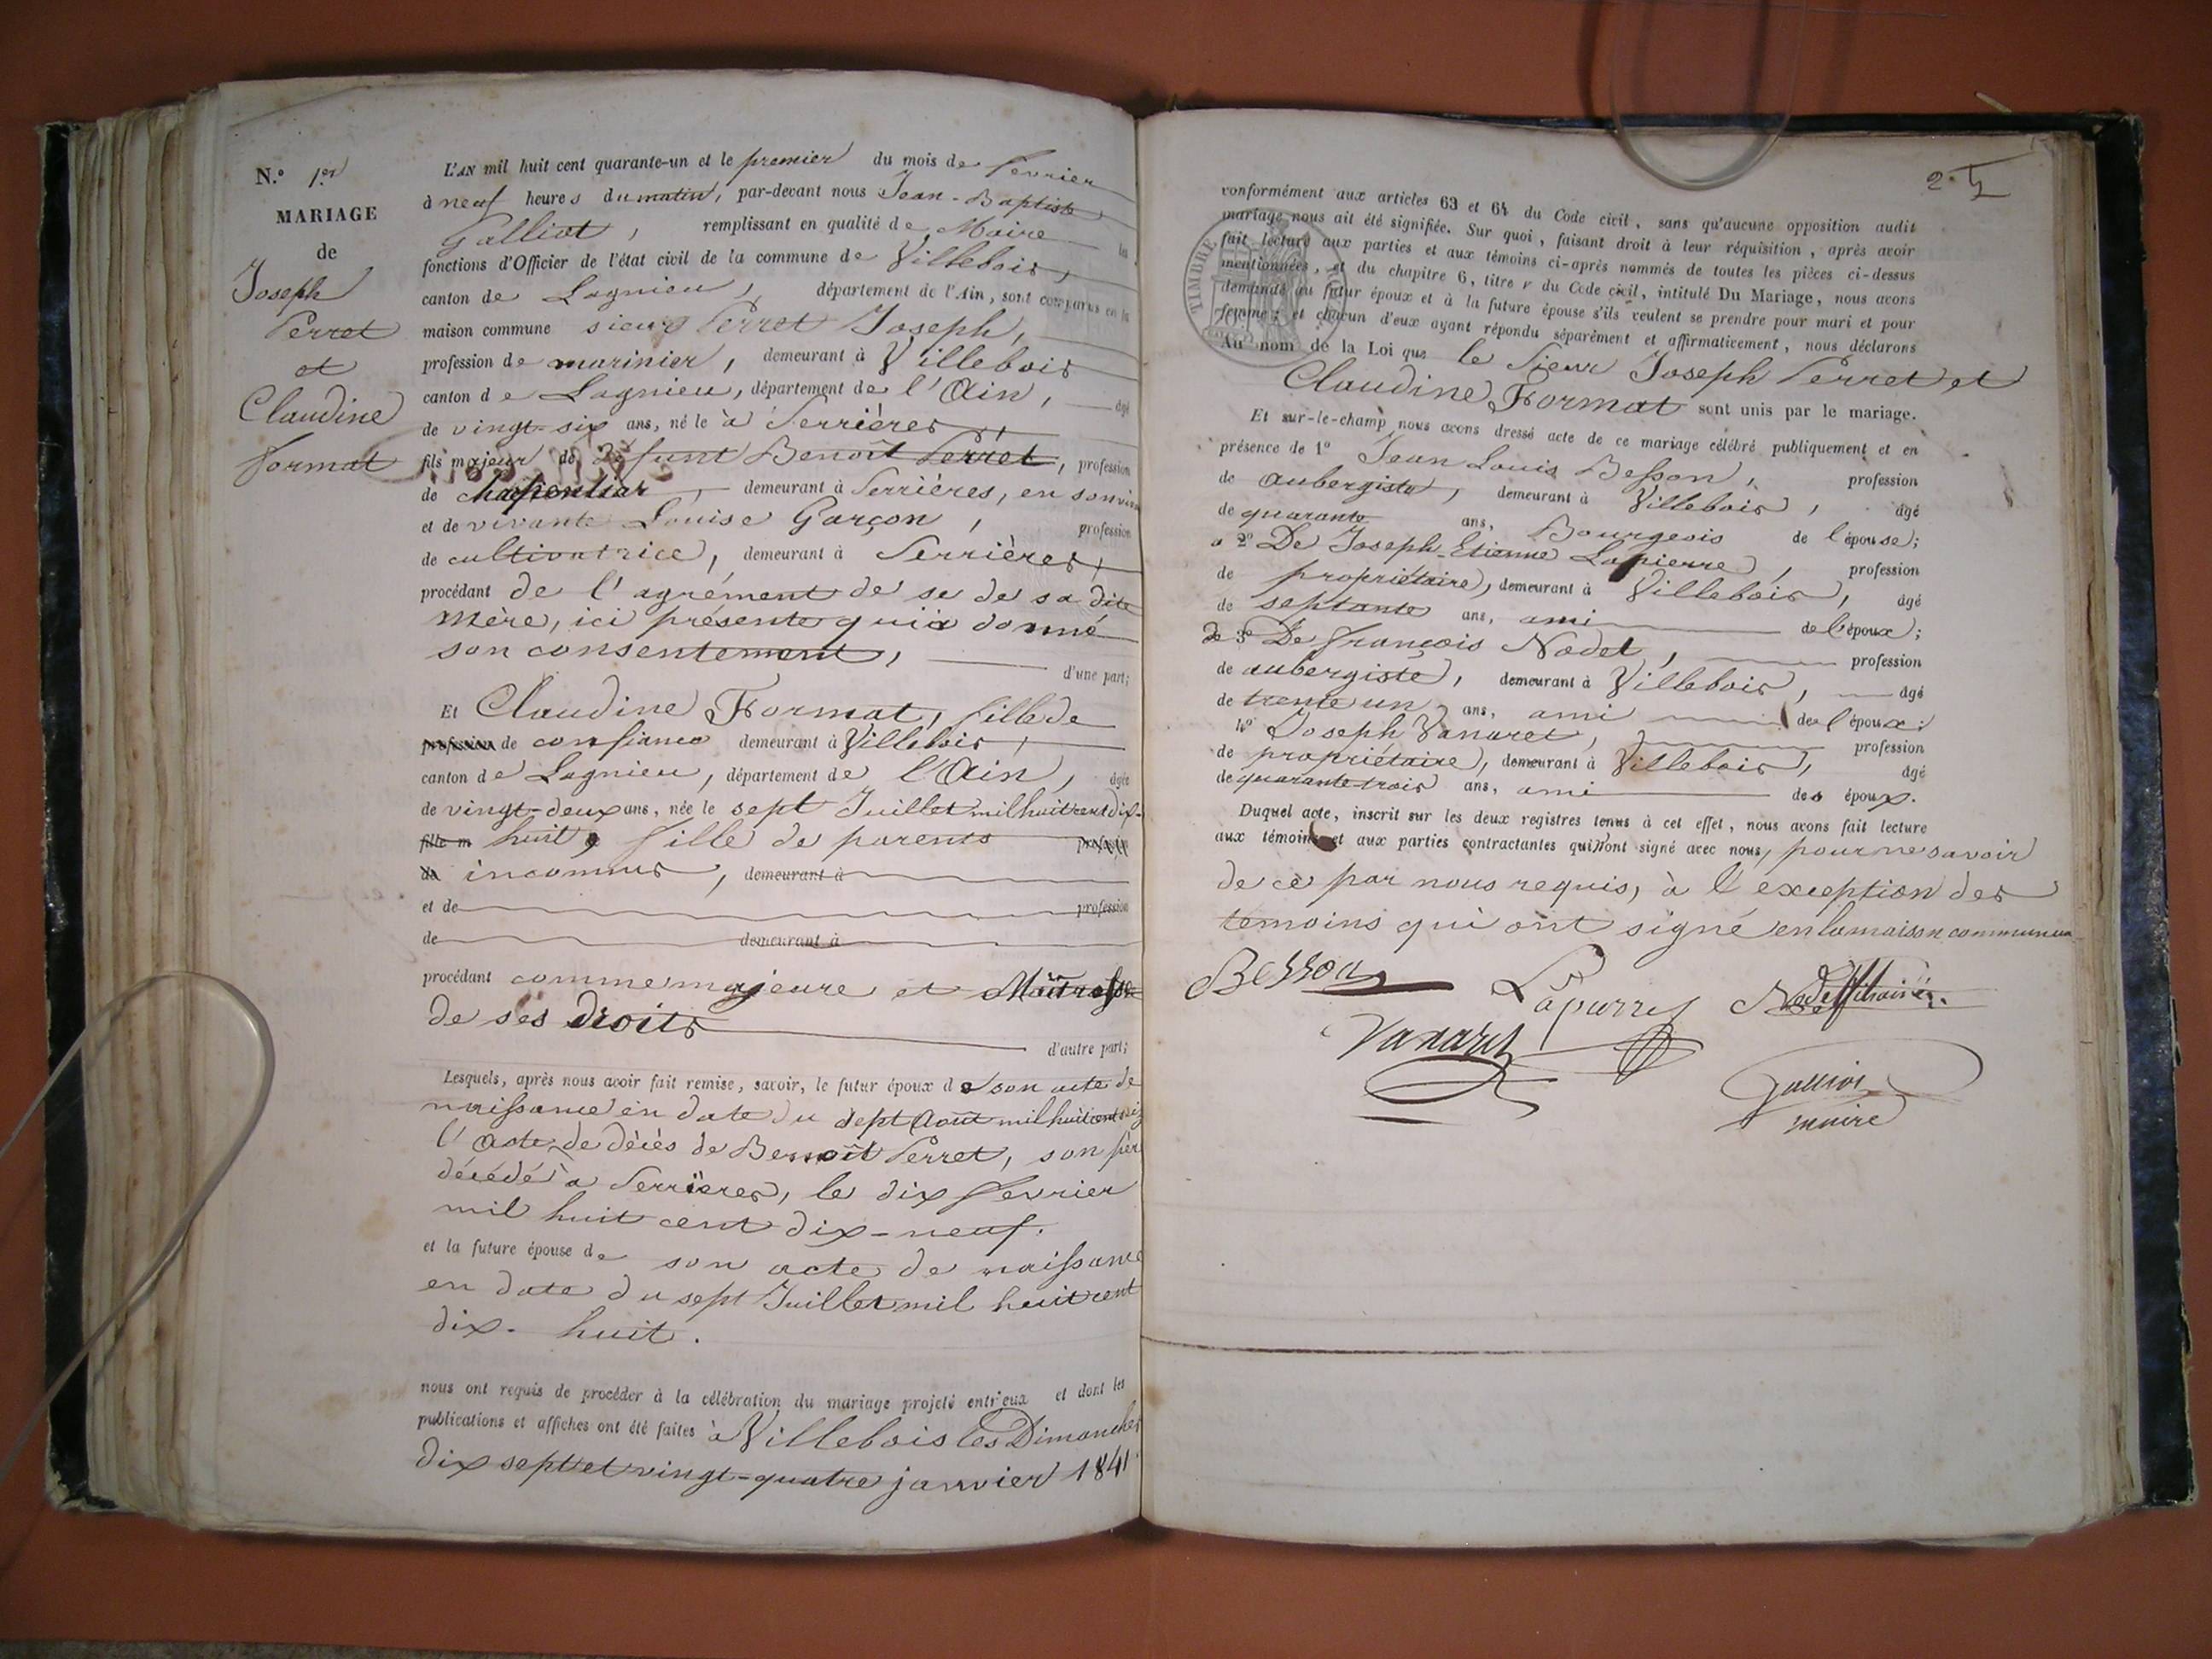 N.o 1.er
MARIAGE
de
Joseph
Perret
et
Claudine
Format
L'AN mil huit cent quarante-un et le premier du mois de fevrier
à neuf heures du matin, par-devant nous Jean-Baptiste
Galliot, remplissant en qualité de Maire les
fonctions d'Officier de l'état civil de la commune de Villebois,
canton de Lagnieu, département de l'Ain, sont comparus en la
maison commune sieur Perret Joseph,
profession de marinier, demeurant à Villebois
canton de Lagnieu, département de l'Ain, âgé
de vingt-six ans, né le à Serrières,
fils majeur de défunt Benoît Perret, profession
de charpentier, demeurant à Serrières, en son viv
et de vivante Louise Garçon, profession
de cultivatrice, demeurant à Serrières,
procédant de l'agrément de se de sa dite
mère, ici présente qui a donné
son consentement, d'une part;
Et Claudine Format, fille de
profession de confiance demeurant à Villebois,
canton de Lagnieu, département de l'Ain, âgée
de vingt-deux ans, née le sept Juillet mil huit cent dix-
fille m huit, fille de parents profession
de inconnus, demeurant à
et de profession
de demeurant à
procédant comme majeure et Maîtresse
de ses droits d'autre part;
Lesquels, après nous avoir fait remise, savoir, le futur époux de son acte de
naissance en date du sept Août mil huit cent
l'Acte de décès de Benoît Perret, son pèr
décédé à Serrières, le dix fevrier
mil huit cent dix-neuf.
et la future épouse de son acte de naissance
en date du sept Juillet mil huit cent
dix-huit.
nous ont requis de procéder à la célébration du mariage projeté entr'eux et dont les
publications et affiches ont été faites à Villebois les Dimanches
dix sept et vingt-quatre janvier 1841
2.
conformément aux articles 63 et 64 du Code civil, sans qu'aucune opposition audit
mariage nous ait été signifiée. Sur quoi, faisant droit à leur réquisition, après avoir
fait lecture aux parties et aux témoins ci-après nommés de toutes les pièces ci-dessus
mentionnées, et du chapitre 6, titre v du Code civil, intitulé Du Mariage, nous avons
demandé au futur époux et à la future épouse s'ils veulent se prendre pour mari et pour
femme; et chacun d'eux ayant répondu séparément et affirmativement, nous déclarons
TIMBRE
Au nom de la Loi que le sieur Joseph Perret et
Claudine Format sont unis par le mariage.
Et sur-le-champ nous avons dressé acte de ce mariage célébré publiquement et en
présence de 1o Jean Louis Besson, profession
de aubergiste, demeurant à Villebois, âgé
de quarante ans, Bourgeois de l'épouse;
2o De Joseph-Etienne Lapierre, profession
de propriétaire, demeurant à Villebois, âgé
de septante ans, ami de l'époux;
3o De françois Nodet, profession
de aubergiste, demeurant à Villebois, âgé
de trente un ans, ami de l'époux;
4o Joseph Vanaret, profession
de propriétaire, demeurant à Villebois, âgé
de quarante trois ans, ami des époux.
Duquel acte, inscrit sur les deux registres tenus à cet effet, nous avons fait lecture
aux témoins et aux parties contractantes qui n'ont signé avec nous, pour ne savoir
de ce par nous requis, à l'exception des
témoins qui ont signé en la maison commune
Besson Lapierre Nodet
Vanaret
Galliot
maire